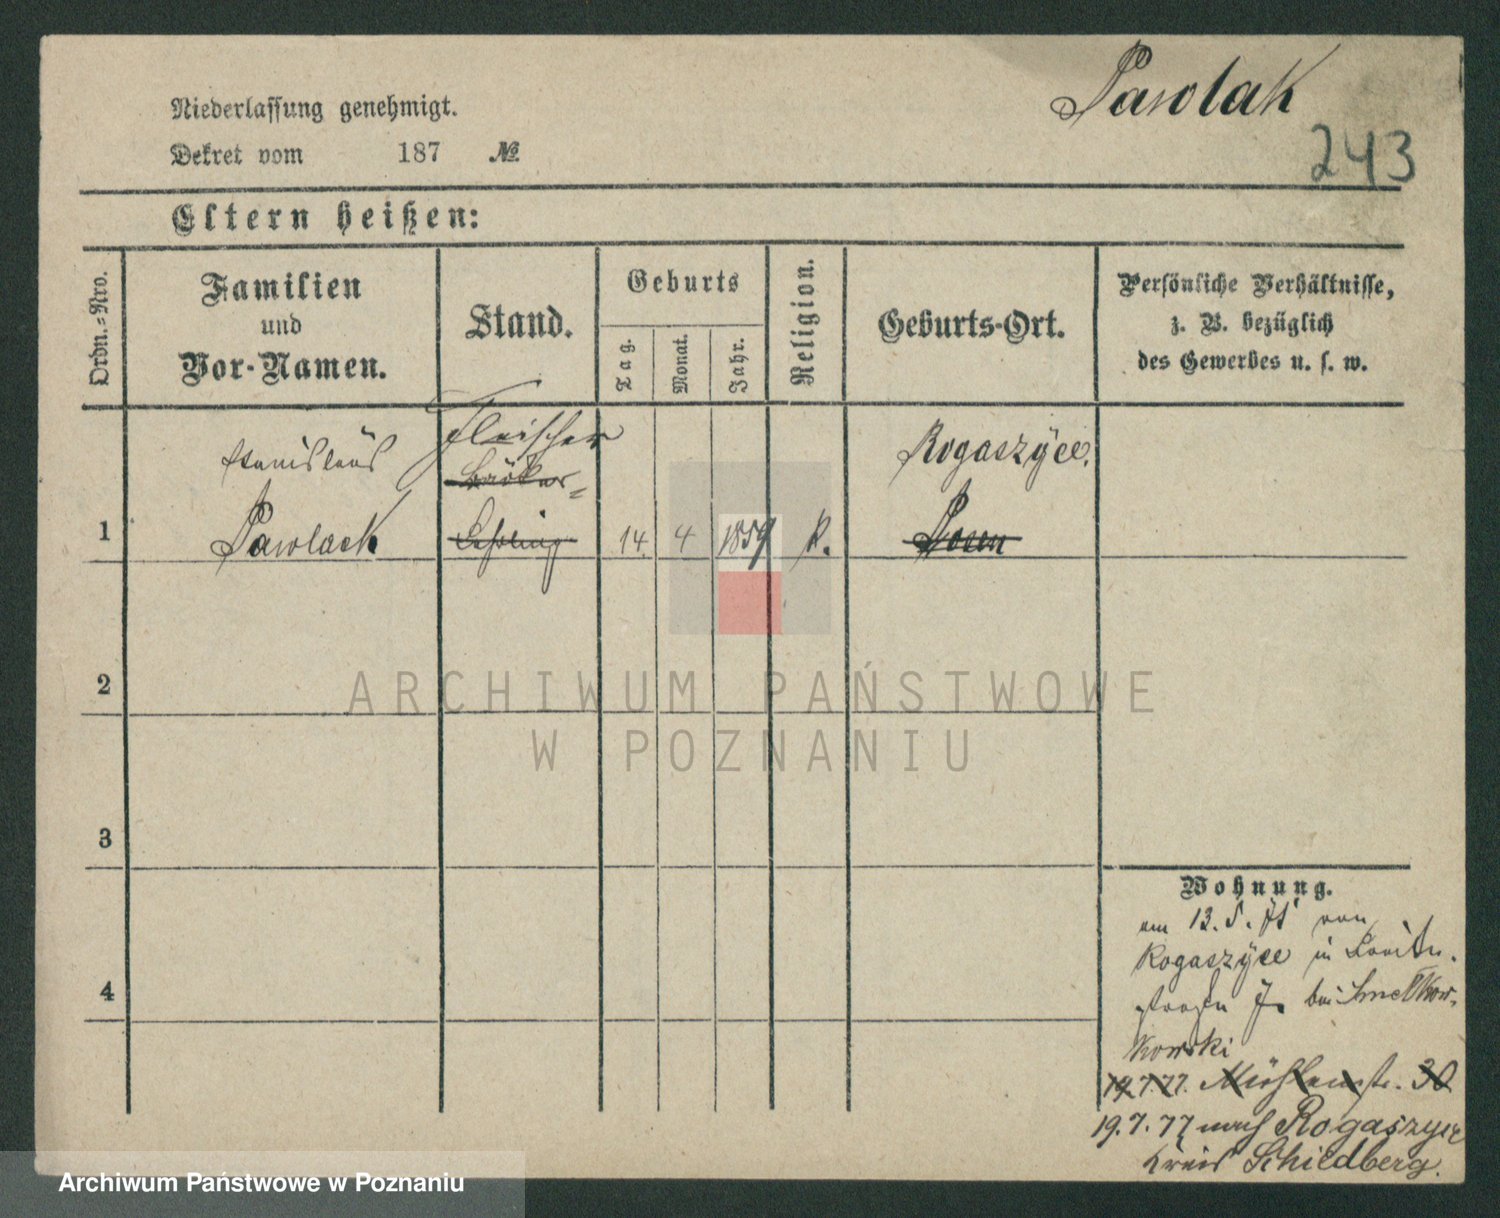 Pawlak
243
Niederlassung genehmigt.
Dekret vom 187 №
Eltern heißen:
Ordn.-Nro.
Familien
und
Vor-Namen.
Stand.
Geburts
Tag.
Monat.
Jahr.
Religion.
Geburts-Ort.
Persönliche Verhältnisse,
z. B. bezüglich
des Gewerbes u. s. w.
Stanislaus
Fleischer
Rogaszÿce.
Bäcker-
1 Pawlack Lehrling 14 4 1859 K. Posen
2
ARCHIWUM PAŃSTWOWE
W POZNANIU
3
4
Wohnung.
am 13.5. von
Rogaszÿce in
bei
kowski
19.7.77. Mühlenstr. 30
19.7.77 nach Rogaszyce
Kreis Schildberg.
Archiwum Państwowe w Poznaniu